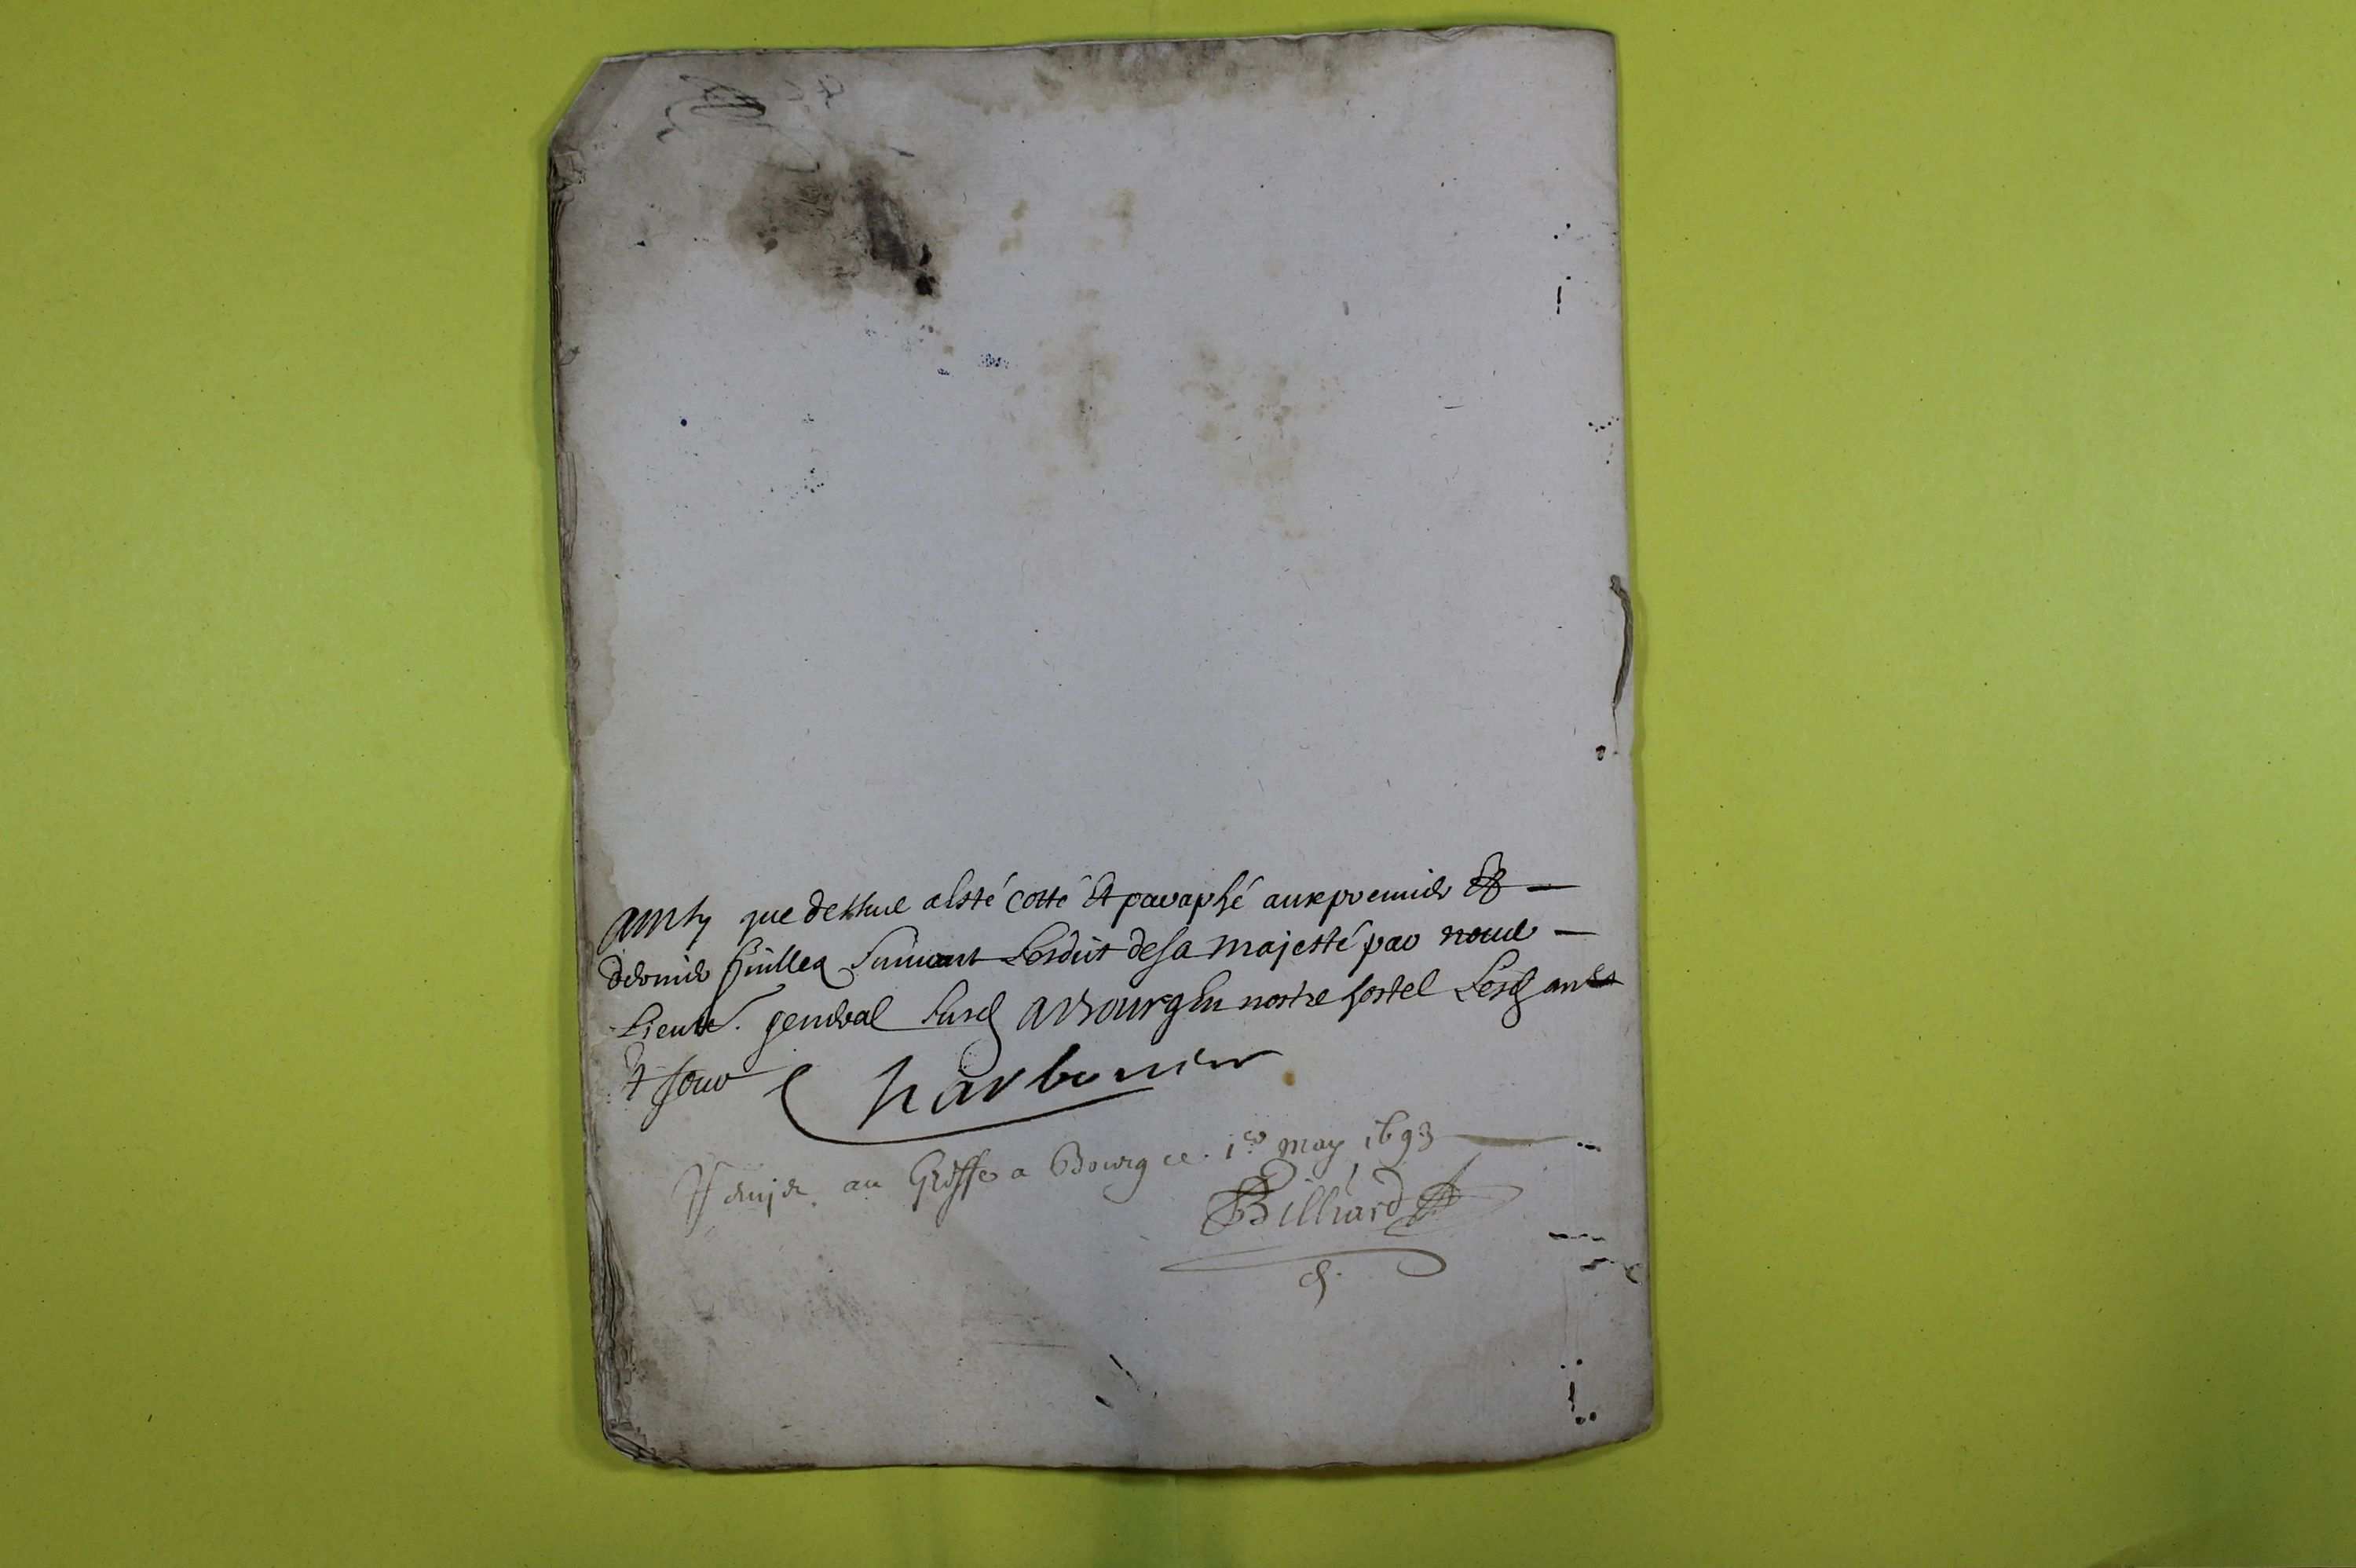 Ainsy que dessus a esté cotté et paraphé aux premier et
dernier feuillea suivant L'esdict de sa majesté par nous
Lieut. general susd a Bourg En nostre hostel Lesd an
et Jour Charbonier
au Greffe a Bourg ce 1er may 1693
Billiard